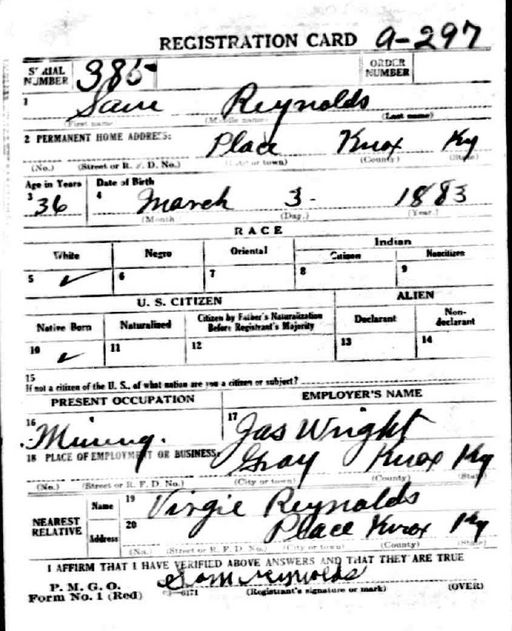 REGISTRATION CARD a-297
SERIAL NUMBER 385 ORDER NUMBER
1 Sam Reynolds
(First name) (Middle name) (Last name)
2 PERMANENT HOME ADDRESS: Place Knox Ky
(No.) (Street or R. F. D. No.) (City or town) (County) (State)
Age in Years Date of Birth
3 36 4 March 3- 1883
(Month (Day.) (Year.)
RACE
White Negro Oriental Indian
Citizen Noncitizen
5 ✓ 6 7 8 9
U. S. CITIZEN ALIEN
Native Born Naturalized Citizen by Father's Naturalization Before Registrant's Majority Declarant Non-declarant
10 ✓ 11 12 13 14
15
If not a citizen of the U. S., of what nation are you a citizen or subject?
PRESENT OCCUPATION EMPLOYER'S NAME
16 Mining. 17 Jas Wright
18 PLACE OF EMPLOYMENT OR BUSINESS: Gray Knox Ky
(No.) (Street or R. F. D. No.) (City or town) (County) (State)
NEAREST RELATIVE
Name 19 Virgie Reynolds
Address 20 Place Knox Ky
(No.) (Street or R. F. D. No.) (City or town) (County) (State)
I AFFIRM THAT I HAVE VERIFIED ABOVE ANSWERS AND THAT THEY ARE TRUE
P. M. G. O. Sam Reynolds
Form No. 1 (Red) (Registrant's signature or mark) (OVER)